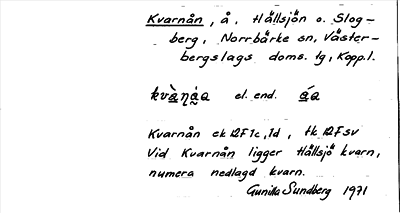 Kvarnån, å, Hällsjön o. Slog-
berg, Norrbärke sn, Väster-
bergslags doms. tg, Kopp. l.
el. end.
Kvarnån ek 12F1c, 1d, tk 12F sv
Vid Kvarnån ligger Hällsjö kvarn,
numera nedlagd kvarn.
Gunilla Sundberg 1971